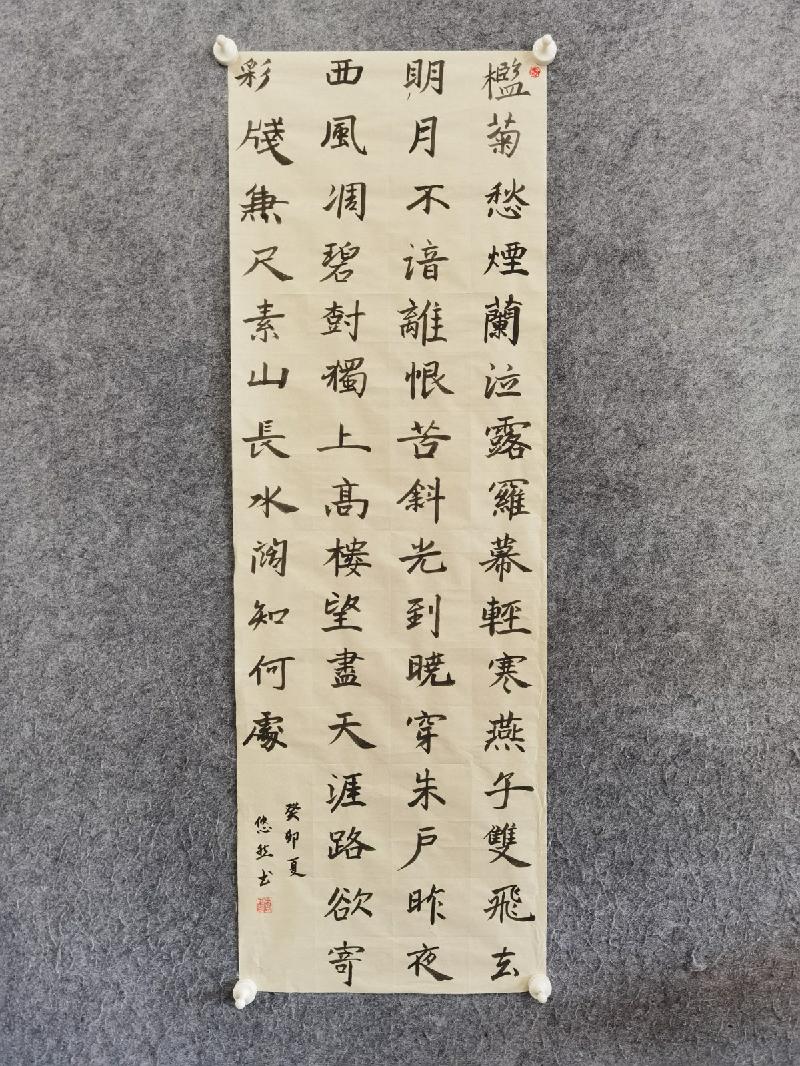 檻菊愁煙蘭泣露羅幕輕寒燕子雙飛去
明月不諳離恨苦斜光到曉穿朱戶昨夜
西風凋碧樹獨上高樓望盡天涯路欲寄
彩牋兼尺素山長水闊知何處
癸卯夏
悠然书